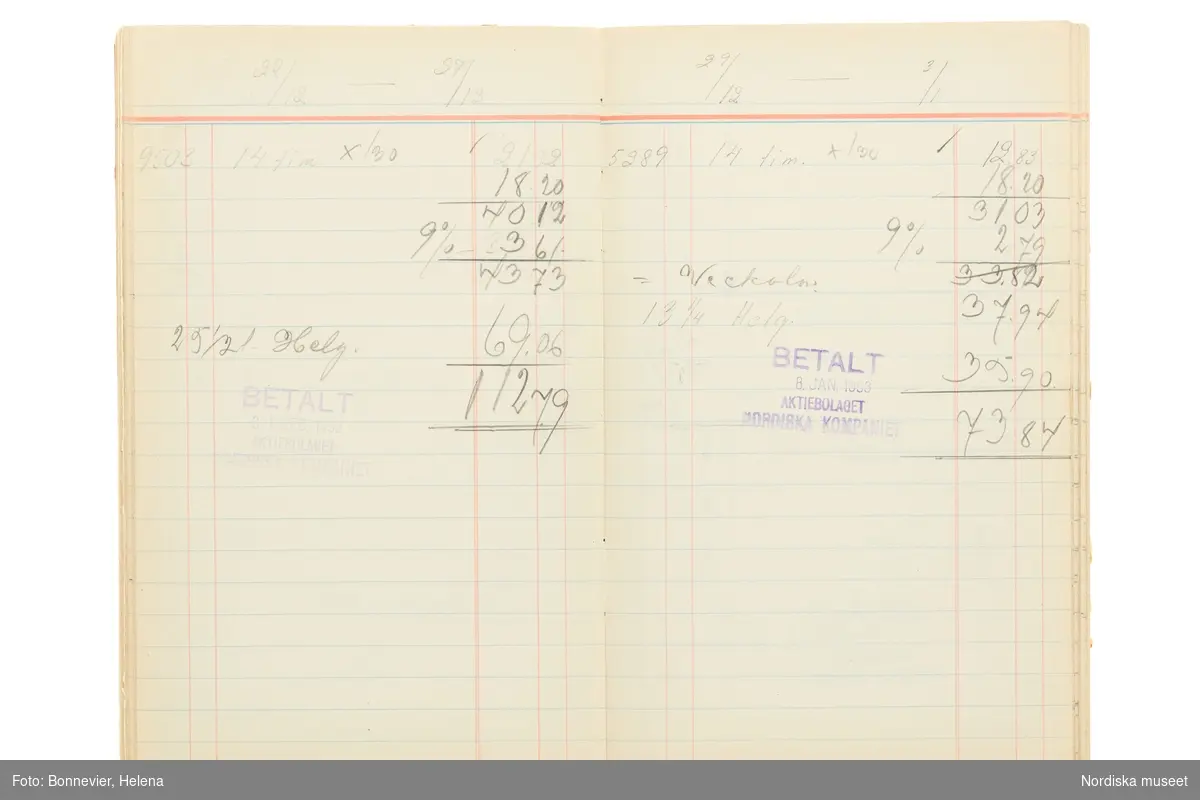 22/12 — 27/12
9503 14 tim x 1/30 21 92
18.20
40 12
9% 3 61.
43 73
25 1/2 t. Helg. 69.06
112.79
BETALT
AKTIEBOLAGET
29/12 — 3/1
5289 14 tim. x 1/30 12 83
18.20
31 03
9% 2 79
33.82
= Veckolön. 37.94
13 1/4 Helg.
35.90.
73 84
BETALT
8. JAN. 1953
AKTIEBOLAGET
NORDISKA KOMPANIET
Foto: Bonnevier, Helena
Nordiska museet